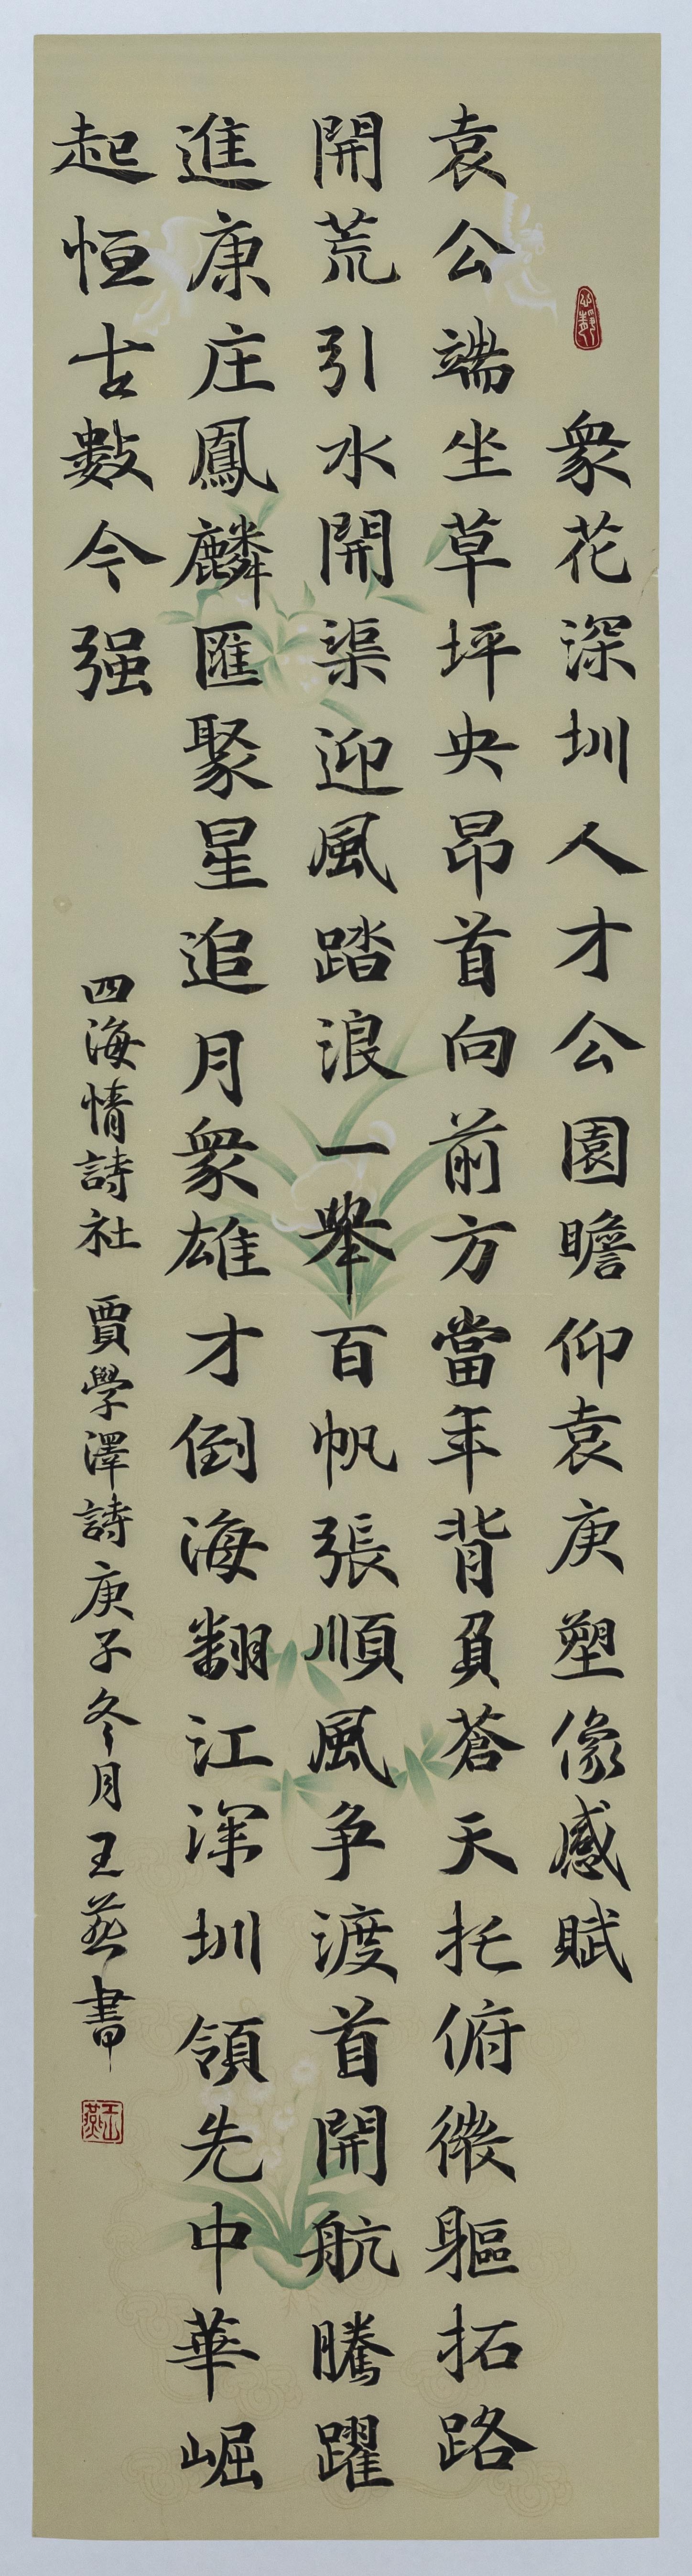 衆花深圳人才公園瞻仰袁庚塑像感賦
袁公端坐草坪央昂首向前方當年背負蒼天托俯微軀拓路
開荒引水開渠迎風踏浪一舉百帆張順風争渡首開航騰躍
進康庄鳳麟匯聚星追月衆雄才倒海翻江深圳領先中華崛
起恒古數今强
四海情詩社 賈學澤詩庚子冬月王燕書